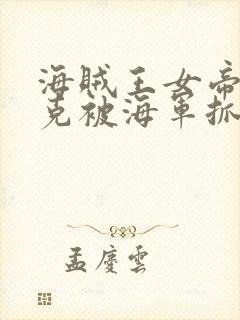 海賊王女帝
克被海軍抓
孟慶雲